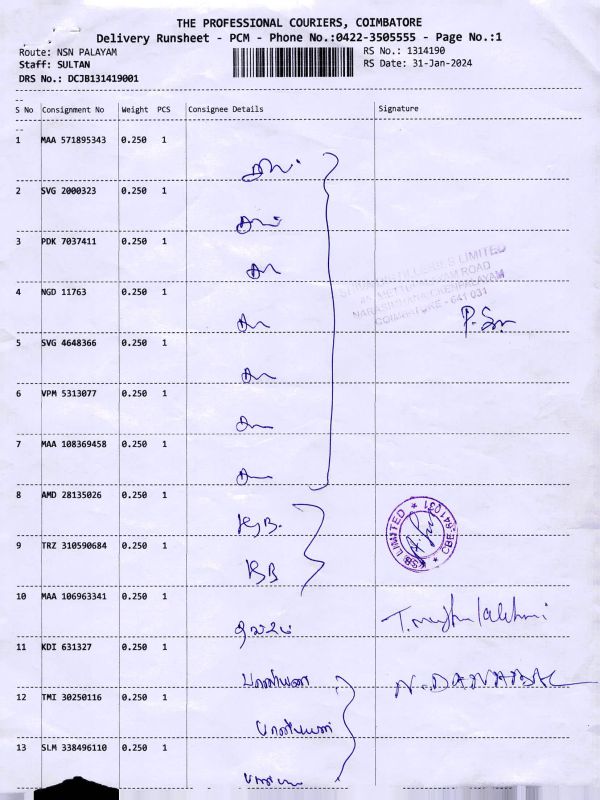 THE PROFESSIONAL COURIERS, COIMBATORE
Delivery Runsheet - PCM - Phone No.:0422-3505555 - Page No.:1
Route: NSN PALAYAM
RS No.: 1314190
Staff: SULTAN
RS Date: 31-Jan-2024
DRS No.: DCJB131419001
S No Consignment No Weight PCS Consignee Details Signature
1 MAA 571895343 0.250 1
2 SVG 2000323 0.250 1
3 PDK 7037411 0.250 1
4 NGD 11763 0.250 1
LIMITED
ROAD
COIMBATORE - 641 031
5 SVG 4648366 0.250 1
6 VPM 5313077 0.250 1
7 MAA 108369458 0.250 1
8 AMD 28135026 0.250 1
KSB.
KSB LIMITED * CBE-641031 *
9 TRZ 310590684 0.250 1
KSB
10 MAA 106963341 0.250 1
11 KDI 631327 0.250 1
N. DANABAL
12 TMI 30250116 0.250 1
13 SLM 338496110 0.250 1